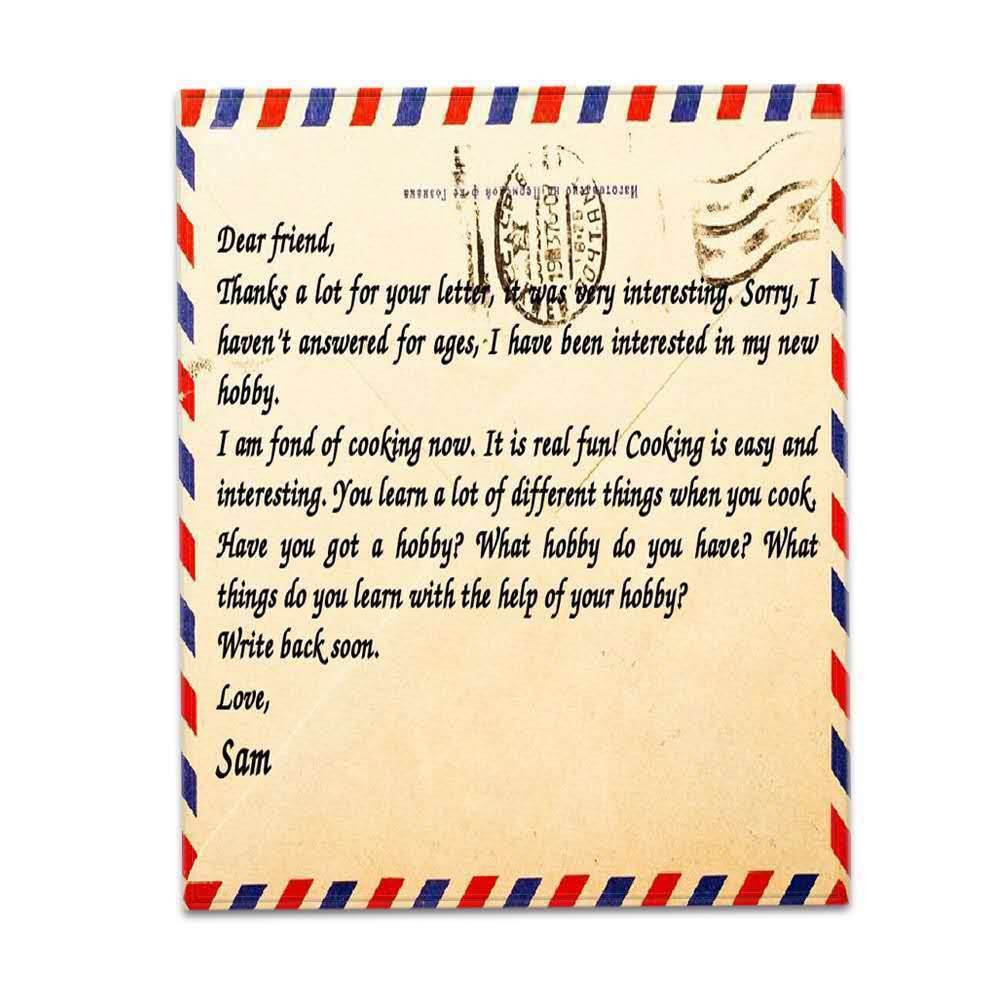 Dear friend,
Thanks a lot for your letter, it was very interesting. Sorry, I
haven't answered for ages, I have been interested in my new
hobby.
I am fond of cooking now. It is real fun! Cooking is easy and
interesting. You learn a lot of different things when you cook.
Have you got a hobby? What hobby do you have? What
things do you learn with the help of your hobby?
Write back soon.
Love,
Sam